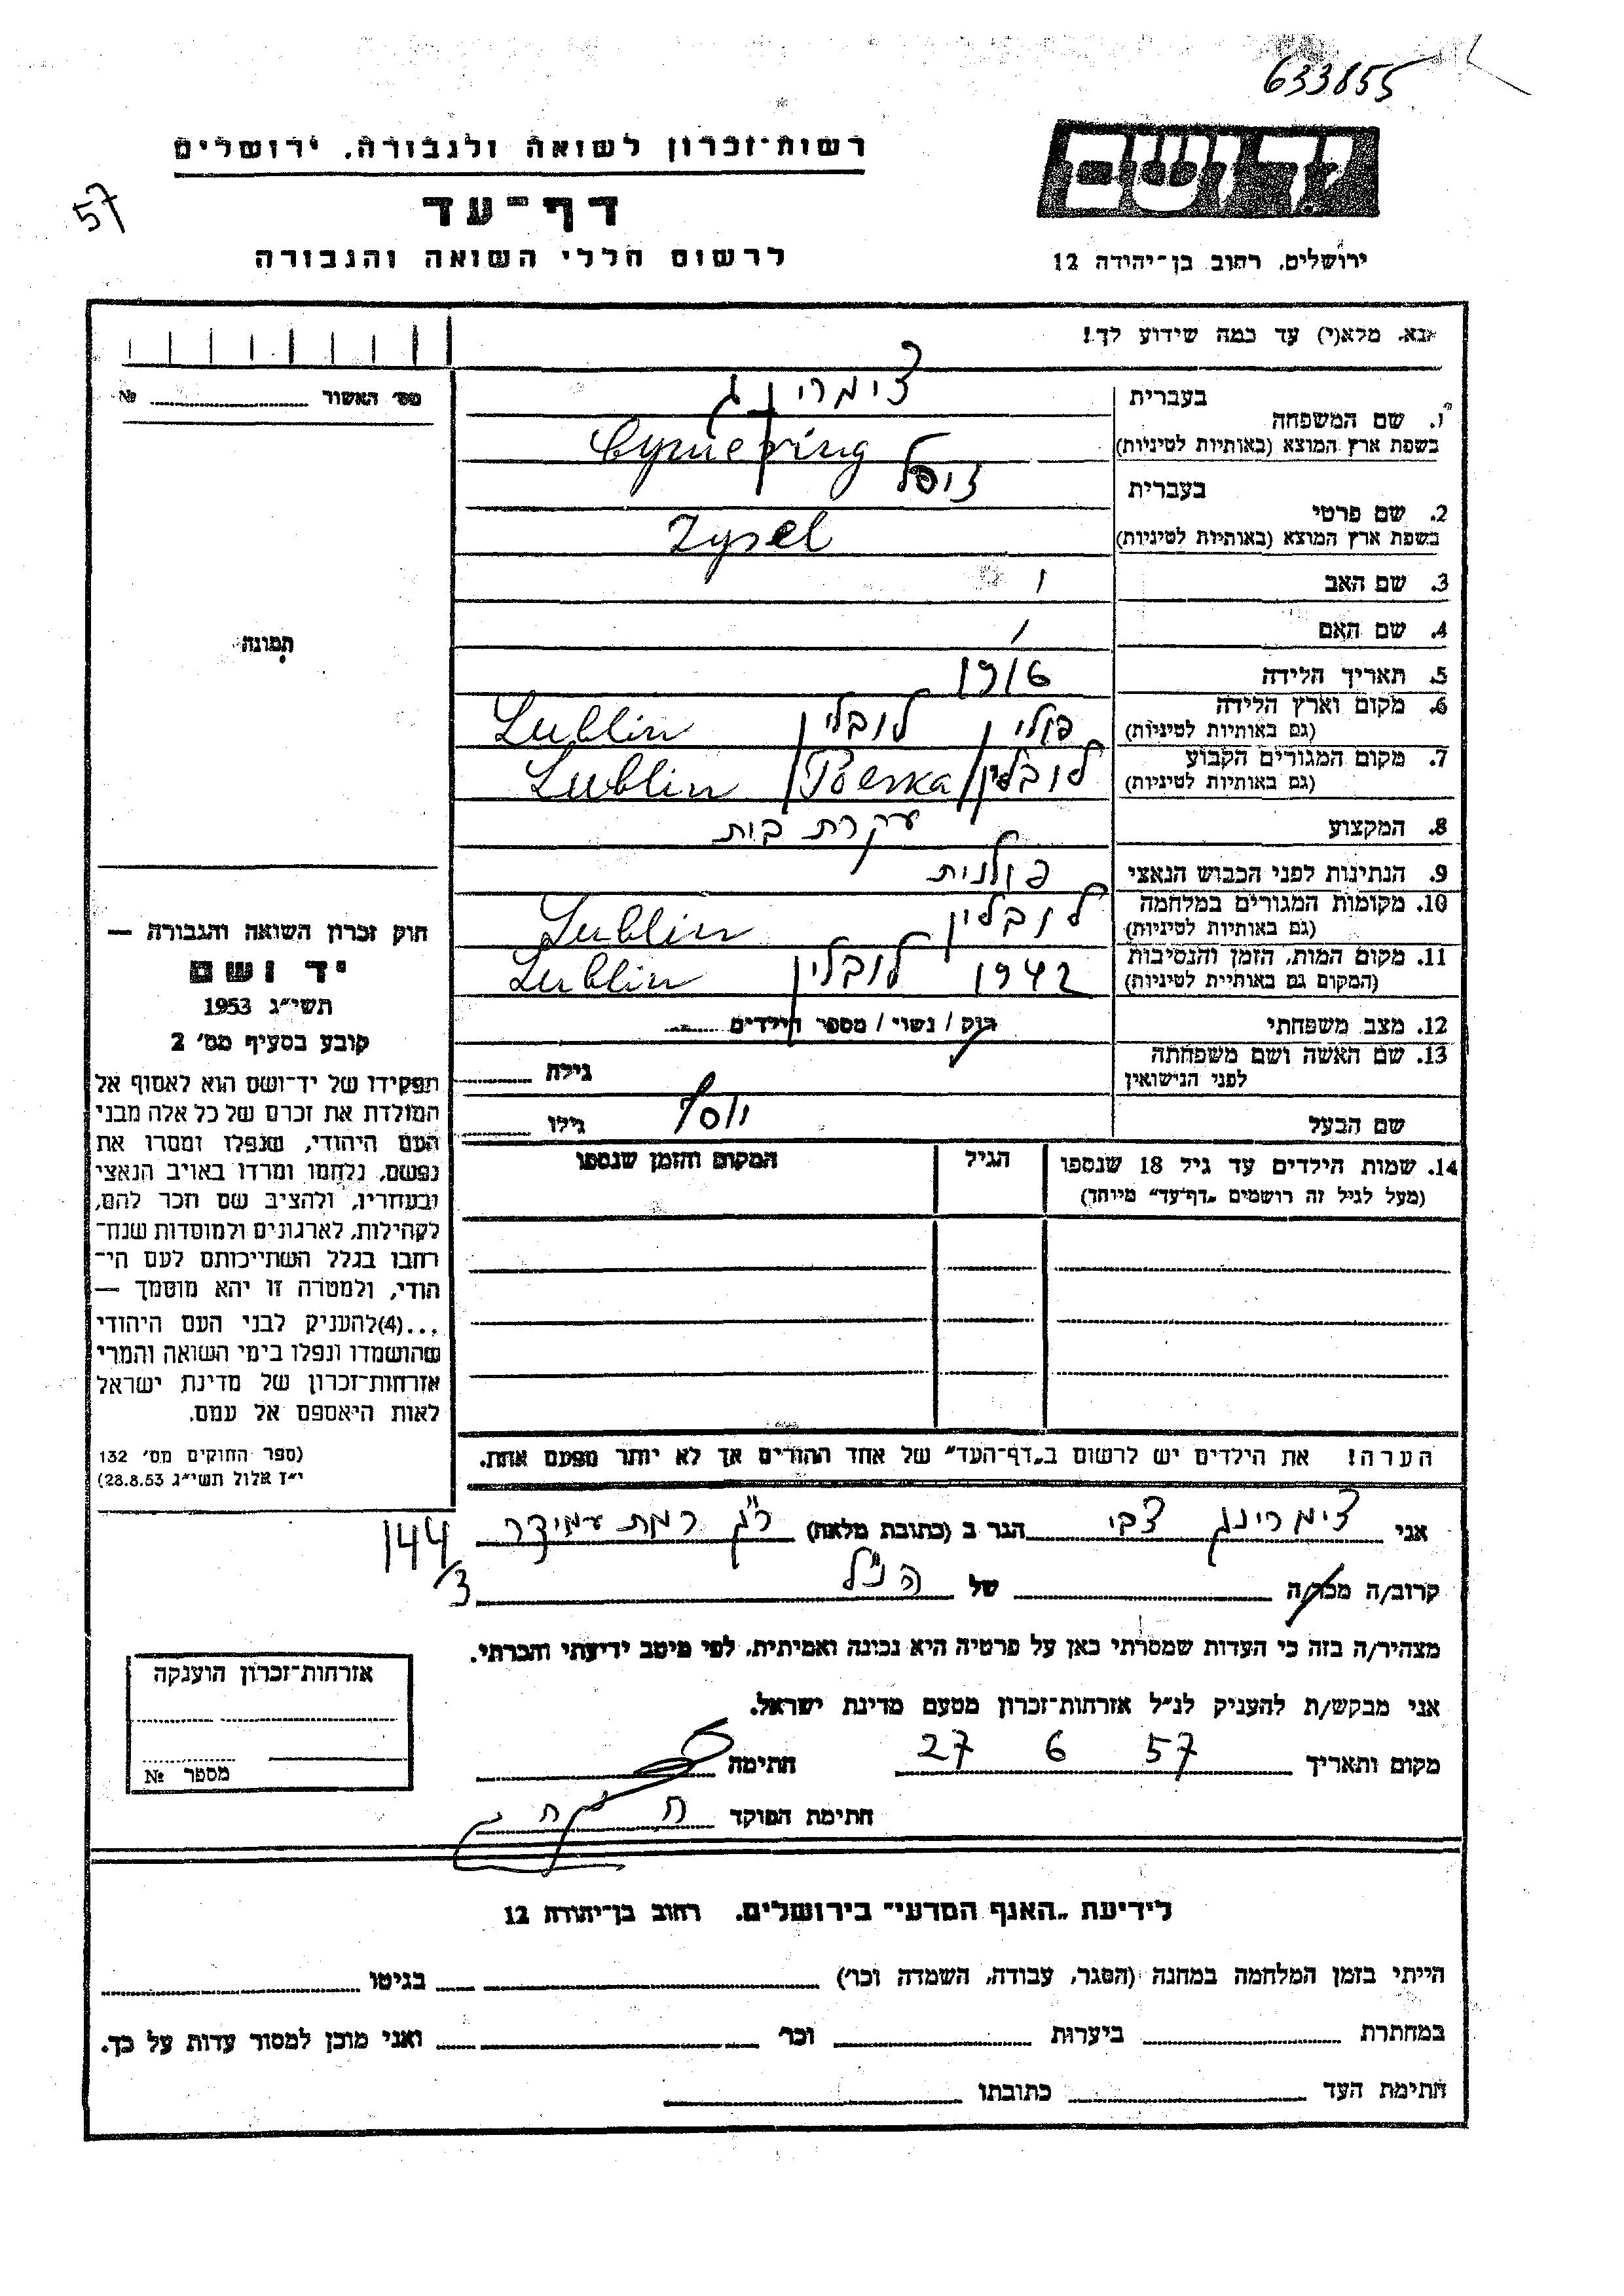 633855
יד ושם
רשות־זכרון לשואה ולגבורה, ירושלים
57
דף־עד
לרשום חללי השואה והגבורה
ירושלים, רחוב בן־יהודה 12
נא, מלא(י) עד כמה שידוע לך!
מס׳ האשור №
1. שם המשפחה
בעברית צימרינג
בשפת ארץ המוצא (באותיות לטיניות) Cymering
2. שם פרטי
בעברית זיסל
בשפת ארץ המוצא (באותיות לטיניות) Zysel
3. שם האב
4. שם האם
תמונה
5. תאריך הלידה 1916
6. מקום וארץ הלידה
(גם באותיות לטיניות) פולין לובלין Lublin
7. מקום המגורים הקבוע
(גם באותיות לטיניות) לובלין Lublin
8. המקצוע עקרת בית
9. הנתינות לפני הכבוש הנאצי פולנית
10. מקומות המגורים במלחמה
(גם באותיות לטיניות) לובלין Lublin
11. מקום המות, הזמן והנסיבות
(המקום גם באותיית לטיניות) 1942 לובלין Lublin
12. מצב משפחתי רוק / נשוי / מספר הילדים
13. שם האשה ושם משפחתה
לפני הנישואין גילה
שם הבעל יוסף גילו
14. שמות הילדים עד גיל 18 שנספו
(מעל לגיל זה רושמים „דף־עד״ מיוחד)
הגיל
המקום והזמן שנספו
חוק זכרון השואה והגבורה —
יד ושם
תשי״ג 1953
קובע בסעיף מס׳ 2
תפקידו של יד־ושם הוא לאסוף אל
המולדת את זכרם של כל אלה מבני
העם היהודי, שנפלו ומסרו את
נפשם, נלחמו ומרדו באויב הנאצי
ובעוזריו, ולהציב שם וזכר להם,
לקהילות, לארגונים ולמוסדות שנח־
רבו בגלל השתייכותם לעם הי־
הודי, ולמטרה זו יהא מוסמך —
...(4)להעניק לבני העם היהודי
שהושמדו ונפלו בימי השואה והמרי
אזרחות־זכרון של מדינת ישראל
לאות היאספם אל עמם.
(ספר החוקים מס׳ 132
י״ז אלול תשי״ג 28.8.53)
הערה! את הילדים יש לרשום ב„דף־העד״ של אחד ההורים אך לא יותר מפעם אחת.
אני צימרינג צבי הגר ב (כתובת מלאה) ר״ג רמת עמידר 144/3
קרוב/ה מכר/ה של הנ״ל
מצהיר/ה בזה כי העדות שמסרתי כאן על פרטיה היא נכונה ואמיתית, לפי מיטב ידיעתי והכרתי.
אני מבקש/ת להעניק לנ״ל אזרחות־זכרון מטעם מדינת ישראל.
מקום ותאריך 27 6 57 חתימה
חתימת הפוקד
אזרחות־זכרון הוענקה
מספר №
לידיעת „האגף המדעי״ בירושלים, רחוב בן־יהודה 12
הייתי בזמן המלחמה במחנה (הסגר, עבודה, השמדה וכו׳) בגיטו
במחתרת ביערות וכו׳ ואני מוכן למסור עדות על כך.
חתימת העד כתובתו